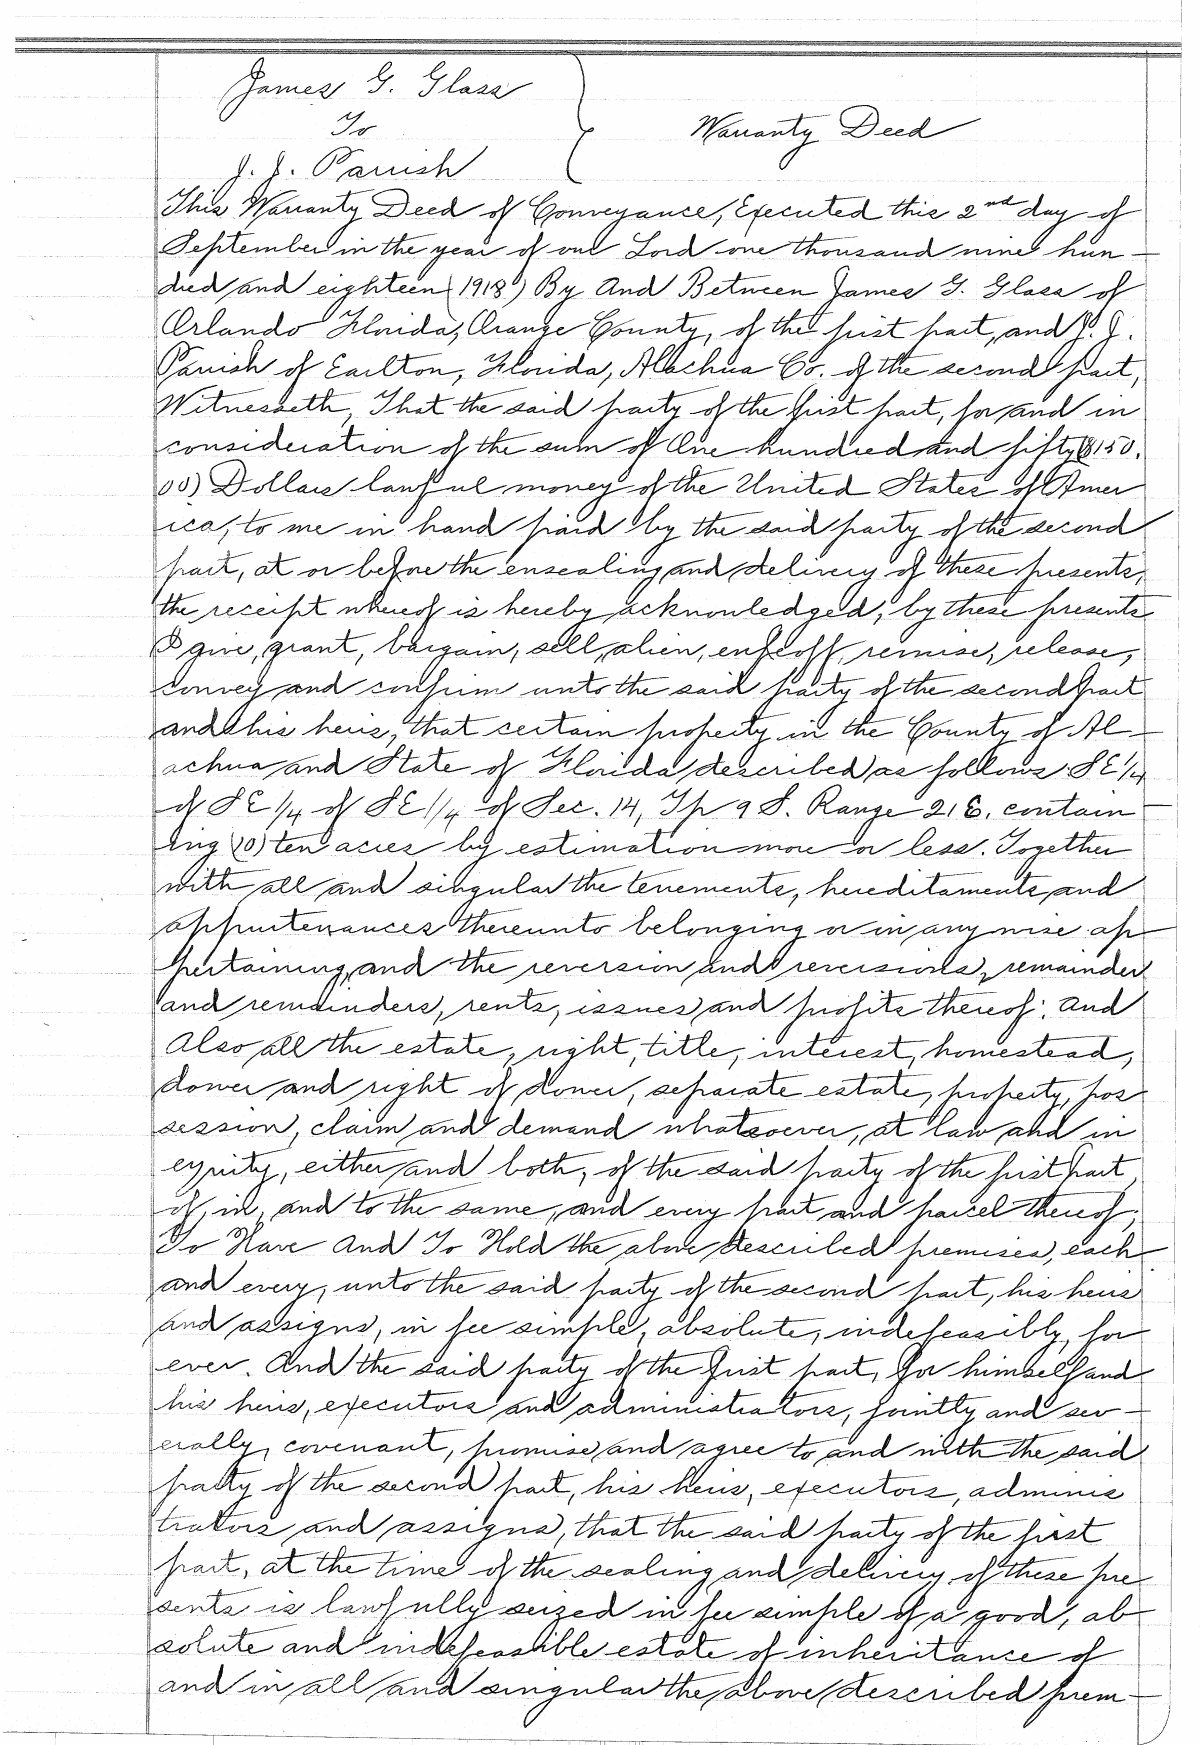 James G. Glass
To
Warranty Deed
J. J. Parrish
This Warranty Deed of Conveyance, Executed this 2nd day of
September in the year of our Lord one thousand nine hun-
dred and eighteen (1918) By And Between James G. Glass of
Orlando Florida, Orange County, of the first part, and J. J.
Parrish of Earlton, Florida, Alachua Co. of the second part,
Witnesseth, That the said party of the first part, for and in
consideration of the sum of One hundred and fifty ($150.
00) Dollars lawful money of the United States of Amer
ica, to me in hand paid by the said party of the second
part, at or before the ensealing and delivery of these presents,
the receipt whereof is hereby acknowledged, by these presents
I give, grant, bargain, sell, alien, enfeoff, remise, release,
convey and confirm unto the said party of the second part
and his heirs, that certain property in the County of Al-
achua and State of Florida described as follows: SE 1/4
of SE 1/4 of SE 1/4 of Sec. 14, Tp 9 S. Range 21 E. contain-
ing (10) ten acres by estimation more or less. Together
with all and singular the tenements, hereditaments and
appurtenances thereunto belonging or in any wise ap-
pertaining, and the reversion and reversions, remainder
and remainders, rents, issues and profits thereof; And
Also all the estate, right, title, interest, homestead,
dower and right of dower, separate estate, property, pos-
session, claim and demand whatsoever, at law and in
equity, either and both, of the said party of the first part
of, in, and to the same, and every part and parcel thereof;
To Have And To Hold the above described premises, each
and every, unto the said party of the second part, his heirs
and assigns, in fee simple, absolute, indefeasibly, for
ever. And the said party of the first part, for himself and
his heirs, executors and administrators, jointly and sev-
erally, covenant, promise and agree to and with the said
party of the second part, his heirs, executors, adminis
trators and assigns, that the said party of the first
part, at the time of the sealing and delivery of these pre
sents is lawfully seized in fee simple of a good, ab-
solute and indefeasible estate of inheritance of
and in all and singular the above described prem-